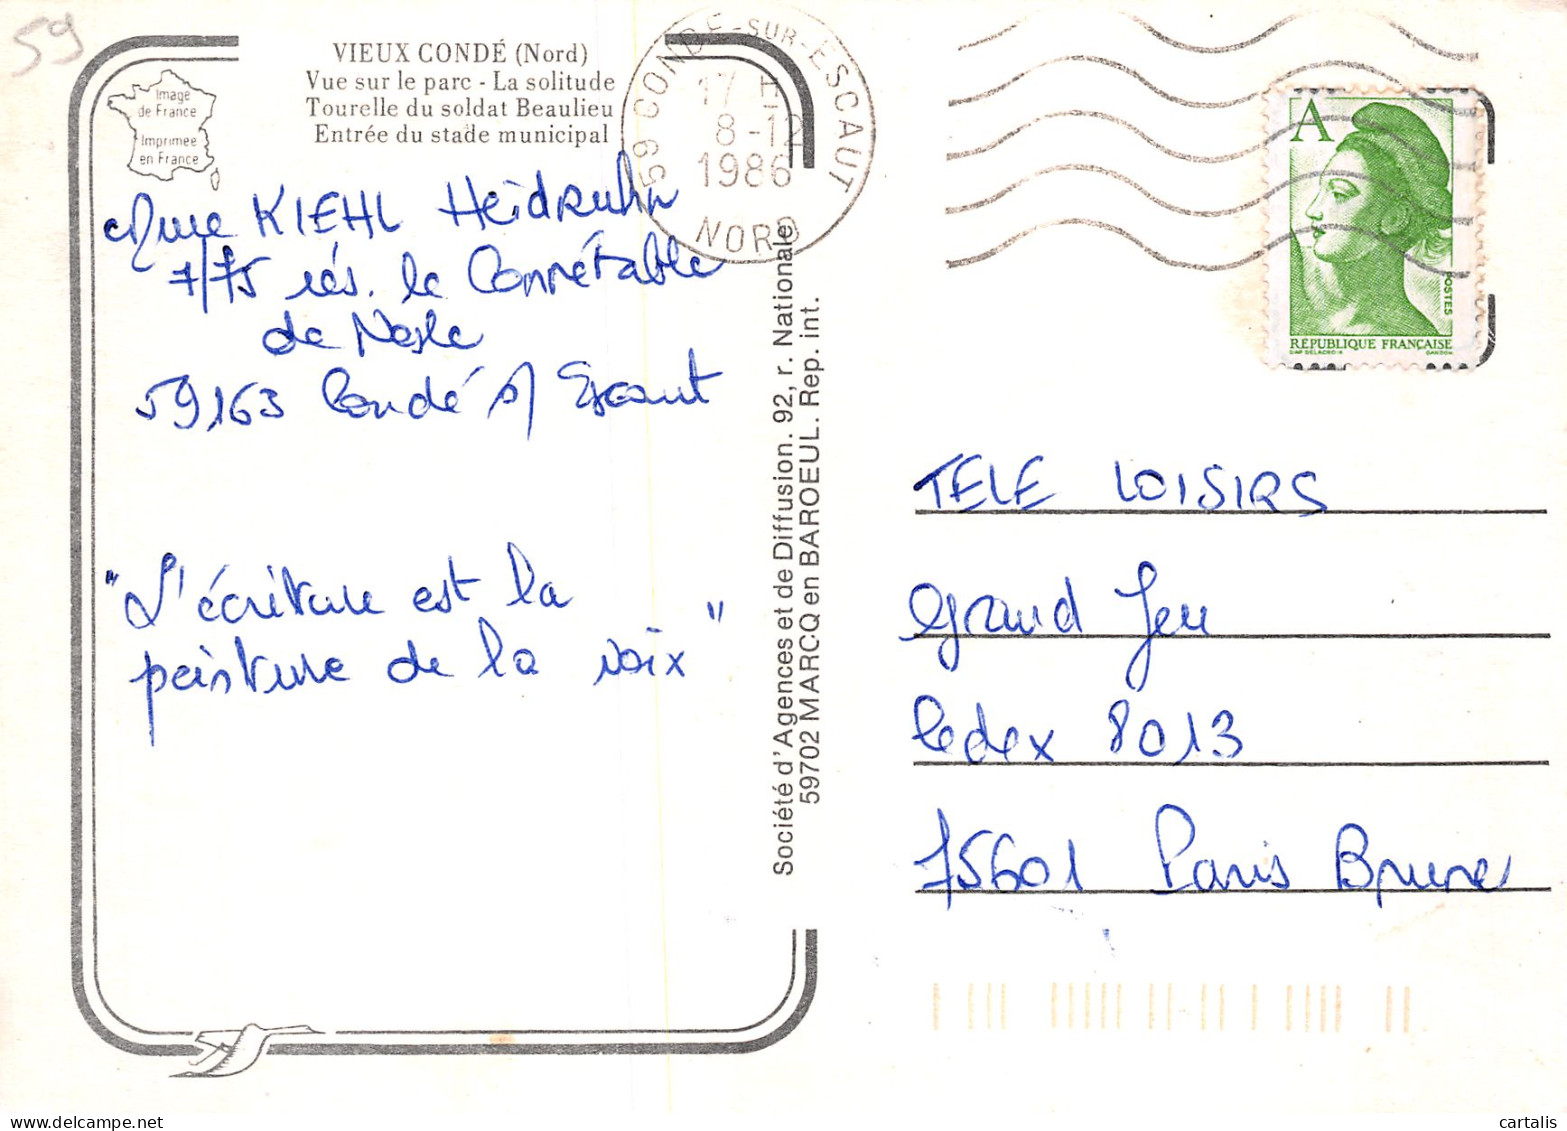 59
VIEUX CONDÉ (Nord)
Vue sur le parc - La solitude
Tourelle du soldat Beaulieu
Entrée du stade municipal
Image
de France
Imprimée
en France
59 CONDE-SUR-ESCAUT
17 H
8-12
1986
NORD
A
POSTES
RÉPUBLIQUE FRANÇAISE
D'AP DELACROIX GANDON
Mme KIEHL Heidruhn
7/75 rés. le Connétable
de Nesle
59163 Condé s/ Escaut
"L'écriture est la
peinture de la voix"
Société d'Agences et de Diffusion. 92, r. Nationale
59702 MARCQ en BAROEUL. Rep. int.
TELE LOISIRS
Grand Jeu
Cedex 8013
75601 Paris Brune
cartalis